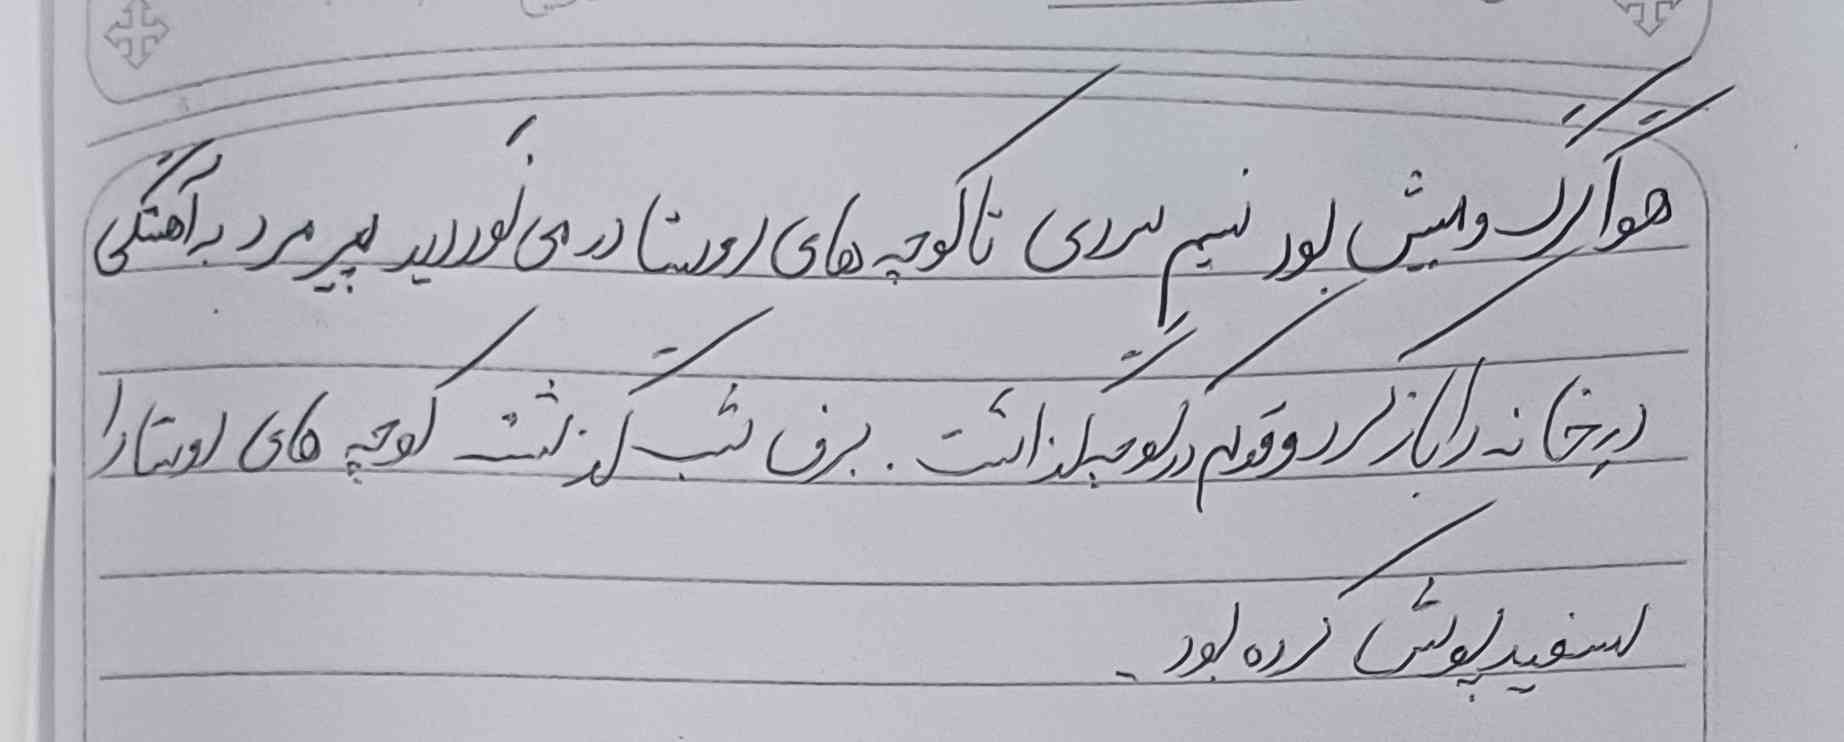 هوا گرگ و میش بود نسیم سردی تا کوچه های روستا در می نوردید پیر مرد به آهستگی
در خانه را باز کرد و قدم در کوچه گذاشت . برف شب گذشته کوچه های روستا را
سفید پوش کرده بود .